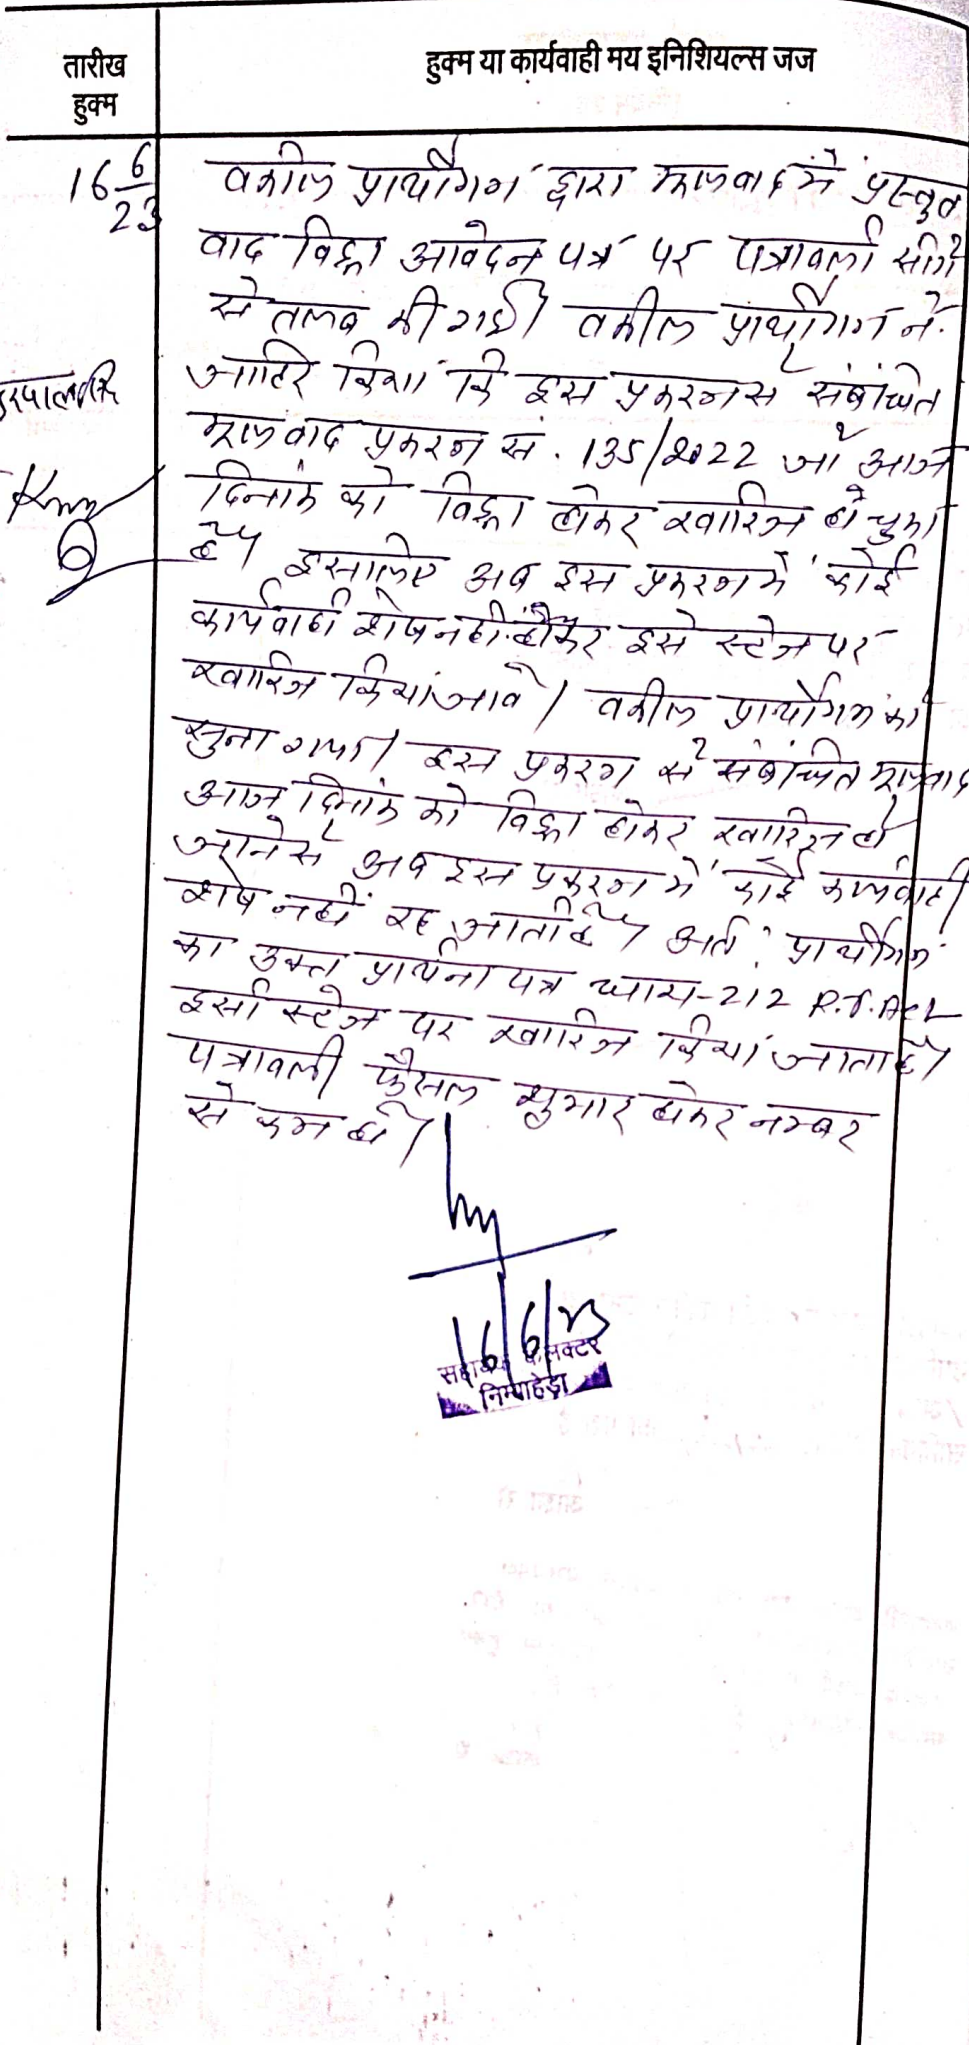 तारीख
हुक्म
हुक्म या कार्यवाही मय इनिशियल्स जज
16 6/23
वकील प्रार्थीगण द्वारा मूलवाद में प्रस्तुत
वाद विड्रा आवेदन पत्र पर पत्रावली सीगे
से तलब की गई। वकील प्रार्थीगण ने
जाहिर किया कि इस प्रकरण से संबंधित
मूलवाद प्रकरण सं. 135/2022 जो आज
दिनांक को विड्रा होकर खारिज हो चुका
है। इसलिए अब इस प्रकरण में कोई
कार्यवाही शेष नही होकर इसे स्टेज पर
खारिज किया जावे। वकील प्रार्थीगण को
सुना गया। इस प्रकरण से संबंधित मूलवाद
आज दिनांक को विड्रा होकर खारिज हो
जाने से अब इस प्रकरण में कोई कार्यवाही
शेष नहीं रह जाती है। अतः प्रार्थीगण
का उक्त प्रार्थना पत्र धारा-212 R.T.Act
इसी स्टेज पर खारिज किया जाता है।
पत्रावली फैसल शुमार होकर नम्बर
से कम हो।
16/6/23
सहायक कलक्टर
निम्बाहेड़ा